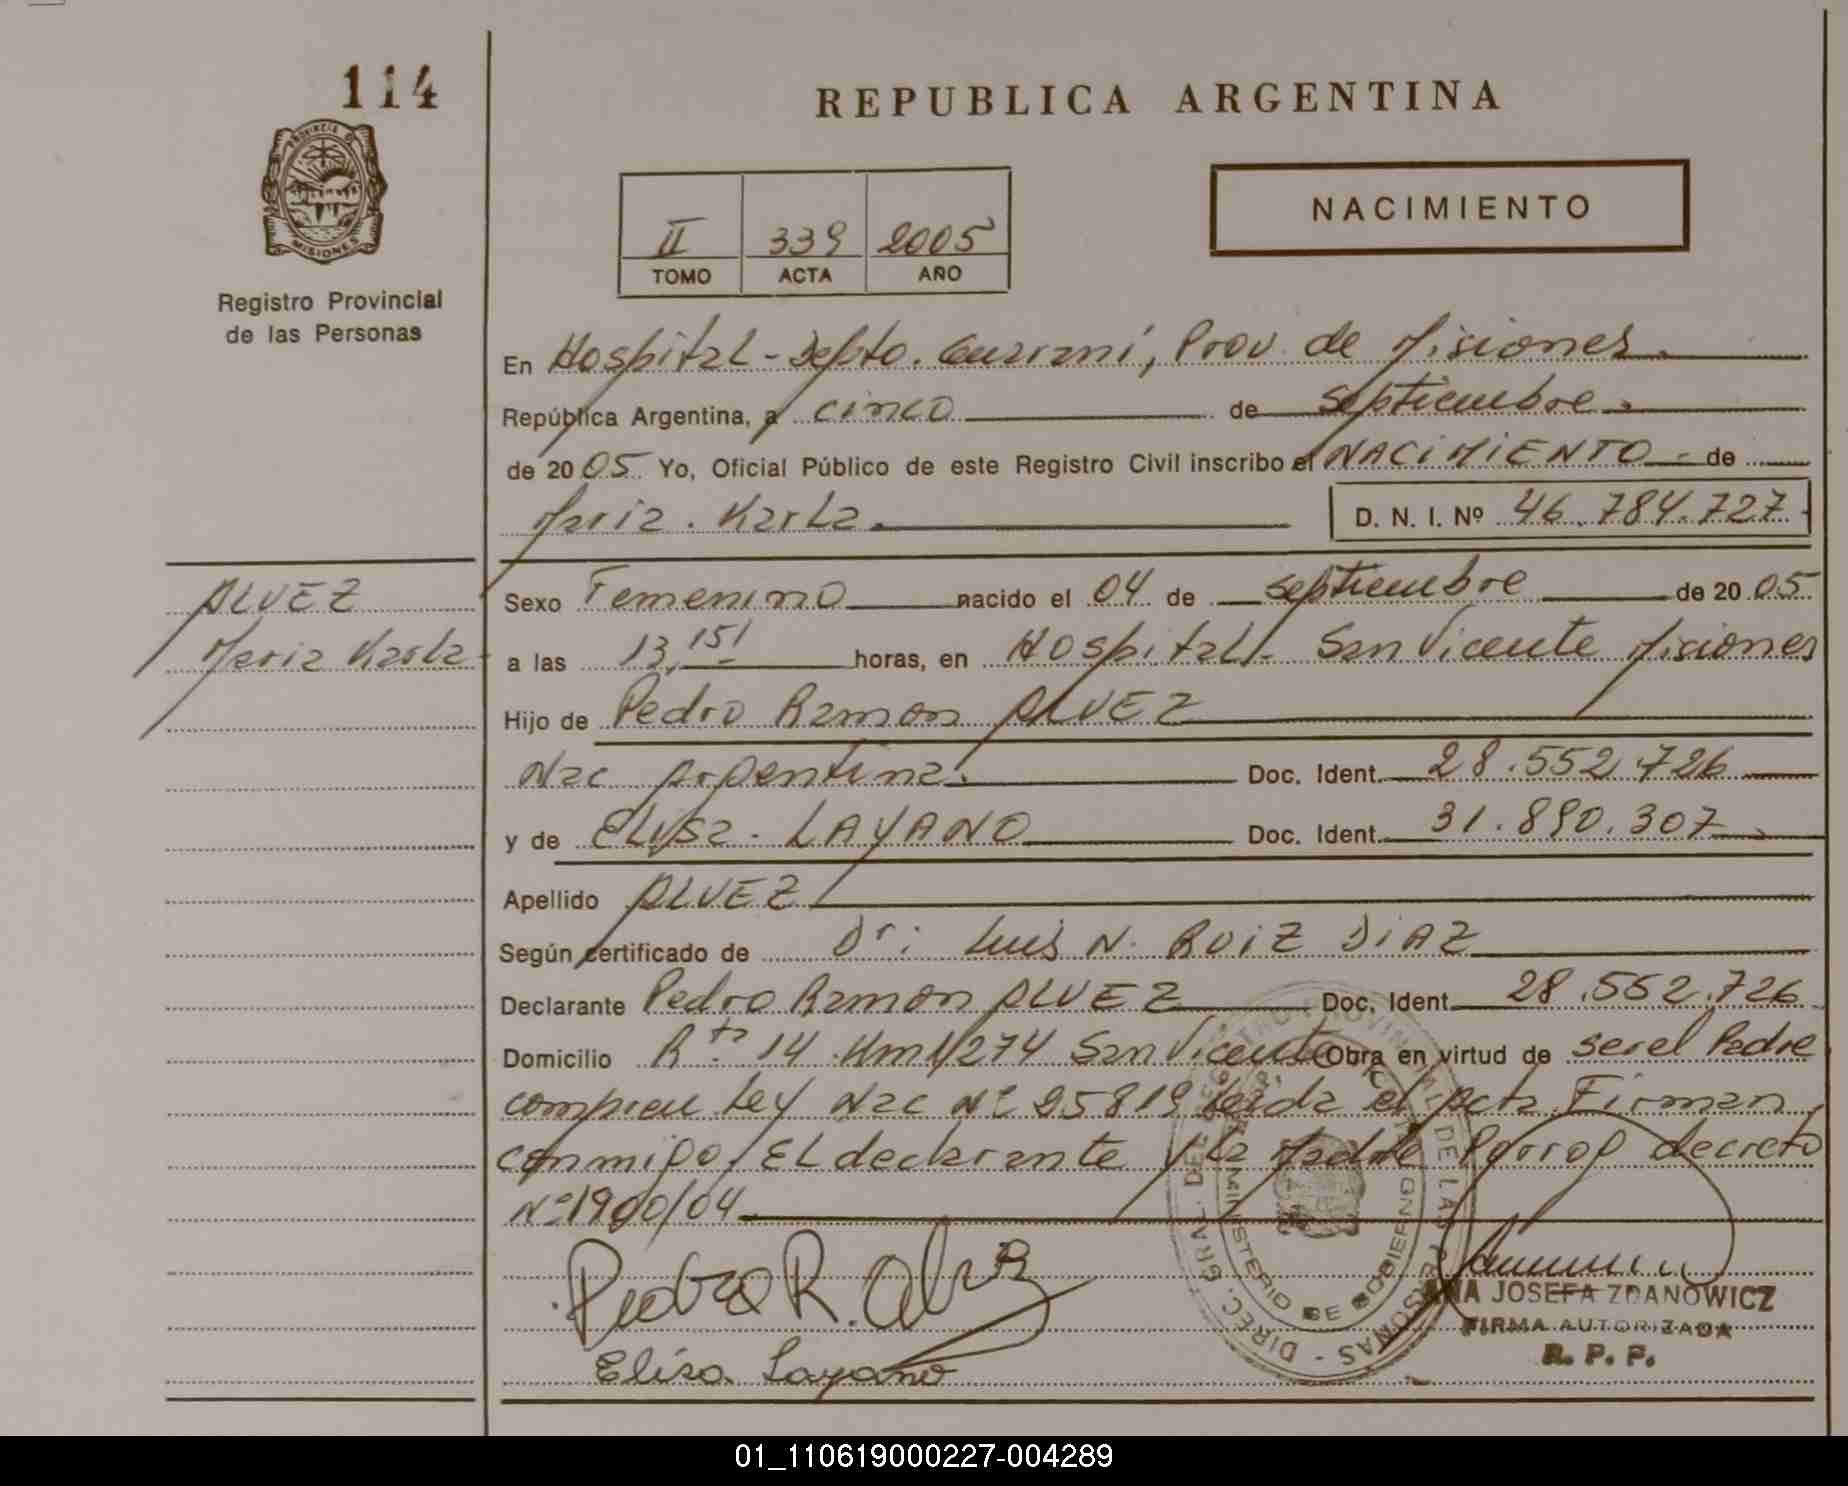 114
REPUBLICA ARGENTINA
PROVINCIA DE
MISIONES
Registro Provincial
de las Personas
II 339 2005
TOMO ACTA AÑO
NACIMIENTO
En Hospital - Depto. Guaraní, Prov. de Misiones.
República Argentina, a cinco de septiembre.
de 2005 Yo, Oficial Público de este Registro Civil inscribo el NACIMIENTO - de
Maria Karla. D. N. I. Nº 46.784.727
ALVEZ
Maria Karla
Sexo Femenino nacido el 04 de septiembre de 2005
a las 13,15 horas, en Hospital - San Vicente Misiones
Hijo de Pedro Ramon ALVEZ
Nac Argentina. Doc. Ident. 28.552.726
y de Elisa. LAYANO Doc. Ident. 31.890.307
Apellido ALVEZ
Según certificado de Dr: Luis N. RUIZ DIAZ
Declarante Pedro Ramon ALVEZ Doc. Ident. 28.552.726
Domicilio Rta 14 Km 1274 San Vicente Obra en virtud de ser el Padre
Ley Nac Nº 25819 leida el acta Firman
conmigo, EL declarante y la Madre Porrog decreto
Nº 1900/04
Pedro R. Alvez
Elisa Layano
DIREC. GRAL. DE REGISTRO PROVINCIAL DE LAS PERSONAS -
MINISTERIO DE GOBIERNO
ANA JOSEFA ZDANOWICZ
FIRMA AUTORIZADA
R. P. P.
01_110619000227-004289